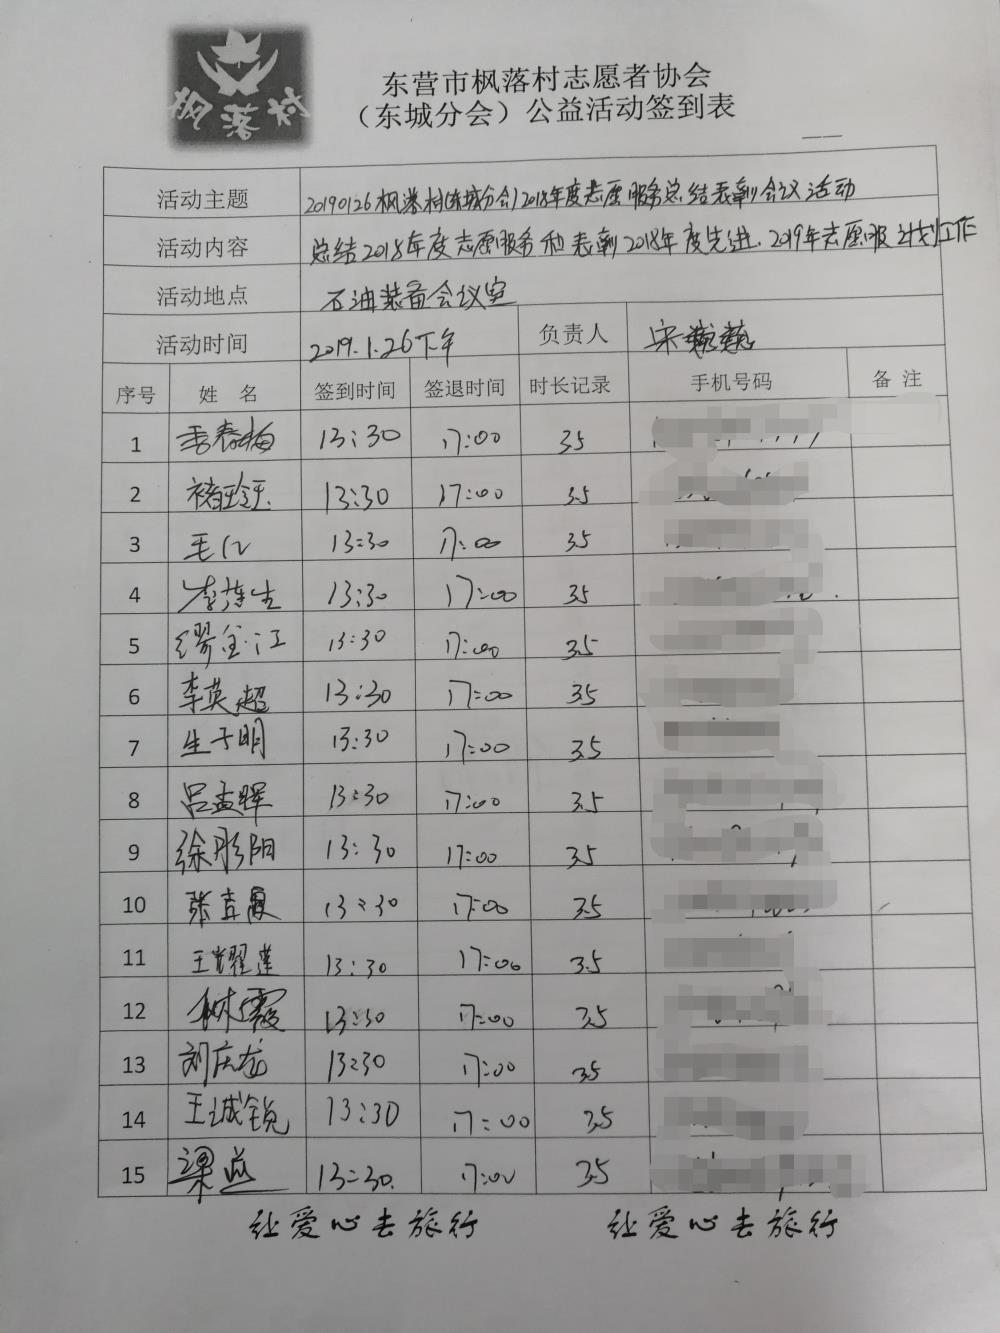 枫落村
东营市枫落村志愿者协会
（东城分会）公益活动签到表
活动主题 20190126枫落村(东城分会)2018年度志愿服务总结表彰会议活动
活动内容 总结2018年度志愿服务和表彰2018年度先进.2019年志愿服计划工作
活动地点 石油装备会议室
活动时间 2019.1.26下午 负责人 宋巍巍
序号 姓 名 签到时间 签退时间 时长记录 手机号码 备 注
1 季春梅 13:30 17:00 3.5
2 13:30 17:00 3.5
3 毛仁 13:30 17:00 3.5
4 李莲生 13:30 17:00 3.5
5 缪金江 13:30 17:00 3.5
6 李英超 13:30 17:00 3.5
7 生于明 13:30 17:00 3.5
8 吕孟晖 13:30 17:00 3.5
9 徐彤阳 13:30 17:00 3.5
10 张吉 13:30 17:00 3.5
11 王耀莲 13:30 17:00 3.5
12 林霞 13:30 17:00 3.5
13 刘庆龙 13:30 17:00 3.5
14 王诚锐 13:30 17:00 3.5
15 梁燕 13:30 17:00 3.5
让爱心去旅行 让爱心去旅行